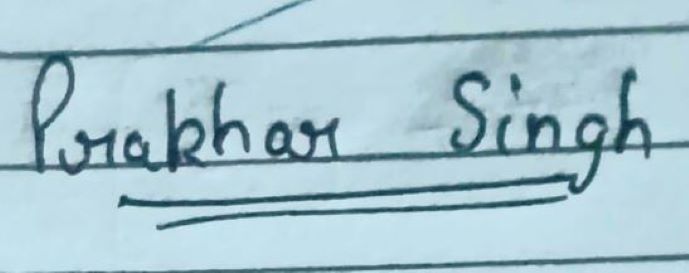 Prakhar Singh